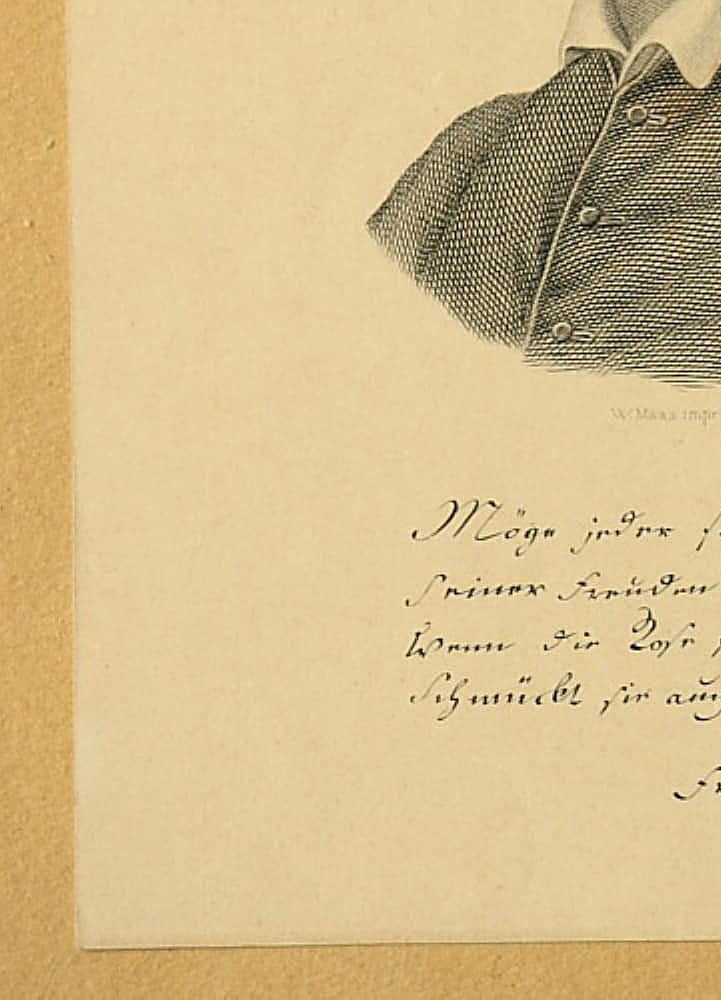 W. Maas impr
Möge jeder
seiner Freuden
Wenn die Rose
Schmückt sie auch
Fr